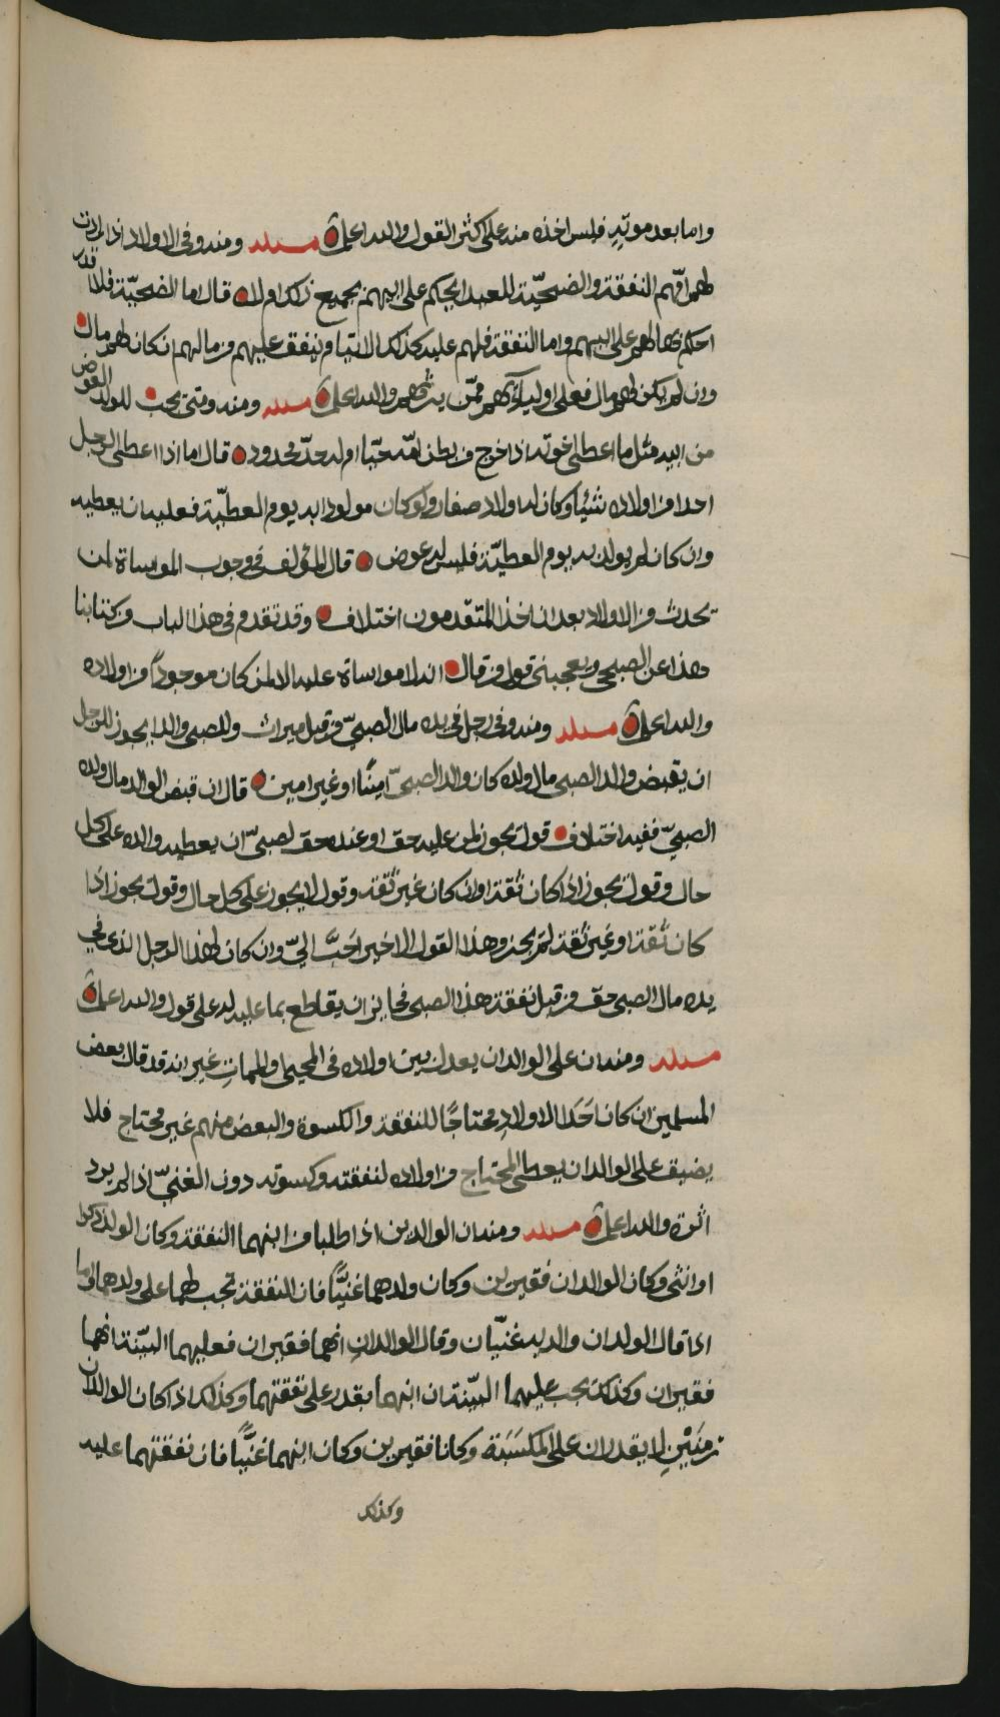 واما بعد موته فليس اخذه منه على اكثر القول والله اعلم مسئلة ومنه وفي الاولاد اذا ارادت
لهم امهم النفقة والضحيّة للعيد ايحكم على ابيهم بجميع ذلك ام لا قال اما الضحيّة فلا اقدر
احكم بها لهم على ابيهم واما النفقة فلهم عليه وكذلك الايتام ينفق عليهم من مالهم ان كان لهم مال
وان لم يكن لهم مال فعلى اوليائهم ممّن يرثهم والله اعلم مسئلة ومنه ومتى يجب للولد العوض
من ابيه مثل ما اعطى اخوته اذا خرج من بطن امّه حيّا ام له حدّ محدود قال اما اذا اعطى الرجل
احدا من اولاده شيئا وكان له اولاد صغار ولو كان مولودا به يوم العطيّة فعليه ان يعطيه
وان كان لم يولد به يوم العطيّة فليس له عوض قال المؤلف في وجوب المواساة لمن
يحدث من الاولاد بعد ان اخذ المتقدمون اختلاف وقد تقدم في هذا الباب من كتابنا
هذا عن الصبحي ويعجبني قول من قال انه لا مواساة عليه الا لمن كان موجوداً من اولاده
والله اعلم مسئلة ومنه وفي رجل في يده مال الصبيّ من قبل ميراث وللصبي والد ايجوز للرجل
ان يقبض والد الصبي مال ولده كان والد الصبيّ امينًا او غير امين قال ان قبض الوالد مال ولده
الصبيّ ففيه اختلاف قول يجوز لمن عليه حق او عنده حق لصبيّ ان يعطيه والده على كل
حال وقول يجوز اذا كان ثقة او ان كان غير ثقة وقول لا يجوز على كل حال وقول يجوز اذا
كان ثقة او غير ثقة لم يجز وهذا القول الاخير احَبَّ اليّ وان كان لهذا الرجل الذي في
يده مال الصبي حق من قبل نفقة هذا الصبي فجايز ان يقاطع بما عليه له على قول والله اعلم
مسئلة ومنه ان على الوالد ان يعدل بين اولاده في المحيى والممات غير انه قد قال بعض
المسلمين ان كان احَدَ الاولادِ محتاجًا للنفقة والكسوة والبعض منهم غير محتاج فلا
يضيق على الوالد ان يعطى المحتاج من اولاده لنفقته وكسوته دون الغنيّ اذا لم يرد
اثرة والله اعلم مسئلة ومنه ان الوالدين اذا طلبا من ابنهما النفقة وكان الولد ذكرا
او انثى وكان الوالدان فقيرين وكان ولدهما غنيًّا فان النفقة تجب لهما على ولدهما
اذا قال الولد ان والديه غنيّان وقال الوالدان انهما فقيران فعليهما البيّنة انهما
فقيران وكذلك يجب عليهما البيّنة ان ابنهما يقدر على نفقتهما وكذلك اذا كان الوالدان
زمنَيْنِ لا يقدران على المكسَبَة وكانا فقيرين وكان ابنهما غنيًّا فان نفقتهما عليه
وكذلك